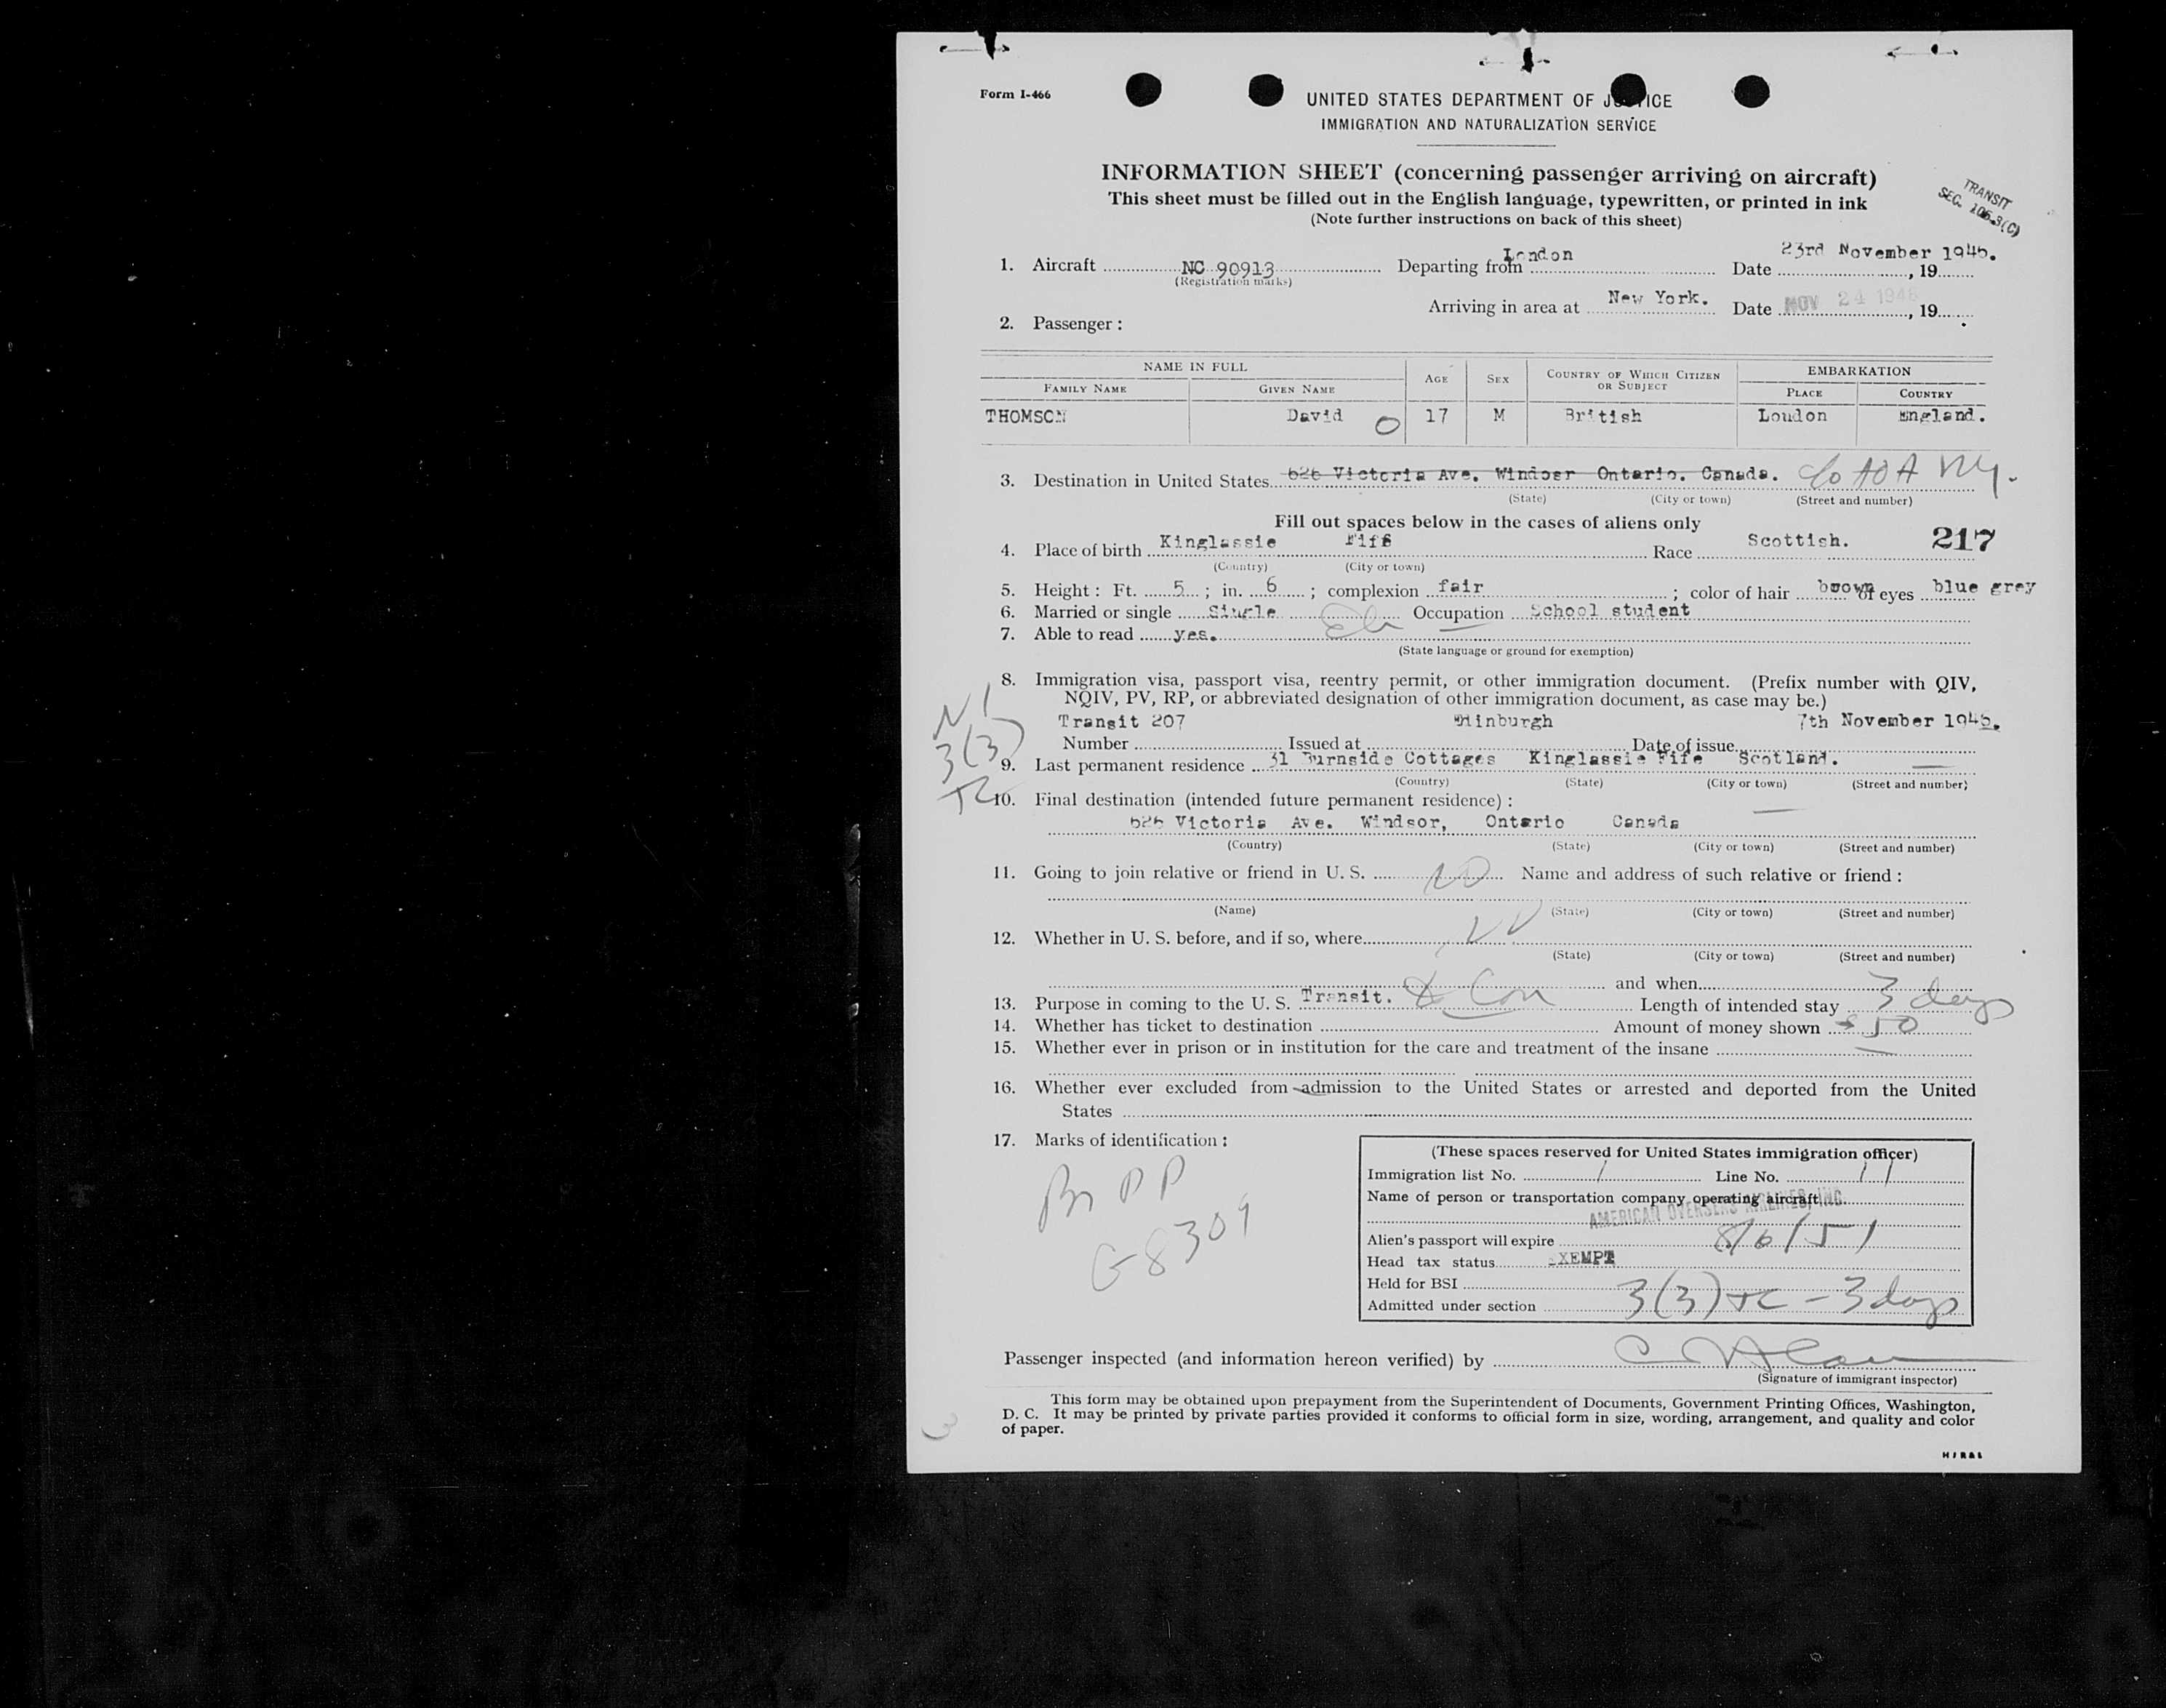 Form I-466
UNITED STATES DEPARTMENT OF JUSTICE
IMMIGRATION AND NATURALIZATION SERVICE
INFORMATION SHEET (concerning passenger arriving on aircraft)
This sheet must be filled out in the English language, typewritten, or printed in ink
(Note further instructions on back of this sheet)
TRANSIT
SEC. 106.3(C)
1. Aircraft NC 90913 Departing from London Date 23rd November 1946. , 19
(Registration marks)
Arriving in area at New York. Date NOV 24 1946 , 19
2. Passenger :
NAME IN FULL AGE SEX COUNTRY OF WHICH CITIZEN OR SUBJECT EMBARKATION
FAMILY NAME GIVEN NAME PLACE COUNTRY
THOMSON David O 17 M British London England.
3. Destination in United States 626 Victoria Ave. Windosr Ontario. Canada. c/o AOA NY.
(State) (City or town) (Street and number)
Fill out spaces below in the cases of aliens only
4. Place of birth Kinglassie Fife Race Scottish. 217
(Country) (City or town)
5. Height : Ft. 5 ; in. 6 ; complexion fair ; color of hair brown of eyes blue grey
6. Married or single Single Occupation School student
7. Able to read yes.
(State language or ground for exemption)
8. Immigration visa, passport visa, reentry permit, or other immigration document. (Prefix number with QIV,
NQIV, PV, RP, or abbreviated designation of other immigration document, as case may be.)
Transit 207 Edinburgh 7th November 1946.
Number Issued at Date of issue
3(3)
9. Last permanent residence 31 Burnside Cottages Kinglassie Fife Scotland.
(Country) (State) (City or town) (Street and number)
10. Final destination (intended future permanent residence) :
626 Victoria Ave. Windsor, Ontario Canada
(Country) (State) (City or town) (Street and number)
11. Going to join relative or friend in U. S. NO Name and address of such relative or friend :
(Name) (State) (City or town) (Street and number)
12. Whether in U. S. before, and if so, where
(State) (City or town) (Street and number)
and when
13. Purpose in coming to the U. S. Transit. Length of intended stay 3 days
14. Whether has ticket to destination Amount of money shown $50
15. Whether ever in prison or in institution for the care and treatment of the insane
16. Whether ever excluded from admission to the United States or arrested and deported from the United
States
17. Marks of identification :
Br PP
G8309
(These spaces reserved for United States immigration officer)
Immigration list No. 1 Line No. 11
Name of person or transportation company operating aircraft
AMERICAN OVERSEAS AIRLINES, INC.
Alien's passport will expire 8/6/51
Head tax status EXEMPT
Held for BSI
Admitted under section 3(3) TC - 3 days
Passenger inspected (and information hereon verified) by
(Signature of immigrant inspector)
This form may be obtained upon prepayment from the Superintendent of Documents, Government Printing Offices, Washington,
D. C. It may be printed by private parties provided it conforms to official form in size, wording, arrangement, and quality and color
of paper.